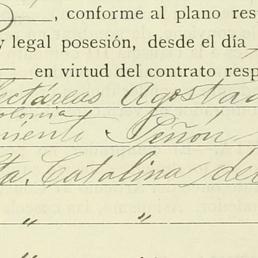 , conforme al plano res
y legal posesión, desde el día
en virtud del contrato resp
ectáreas Agostad
olonia
miento Peñón
ta. Catalina de
" "